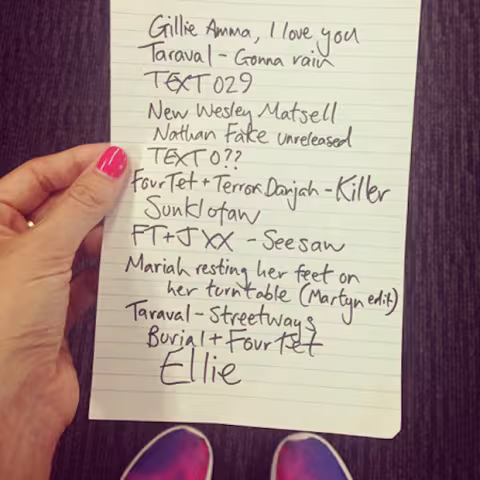 Gillie Amma, I love you
Taraval - Gonna rain
TEXT 029
New Wesley Matsell
Nathan Fake unreleased
TEXT 0??
Four Tet + Terror Danjah - Killer
Sunklofaw
FT + J XX - Seesaw
Mariah resting her feet on
her turntable (Martyn edit)
Taraval - Streetways
Burial + Four Tet
Ellie